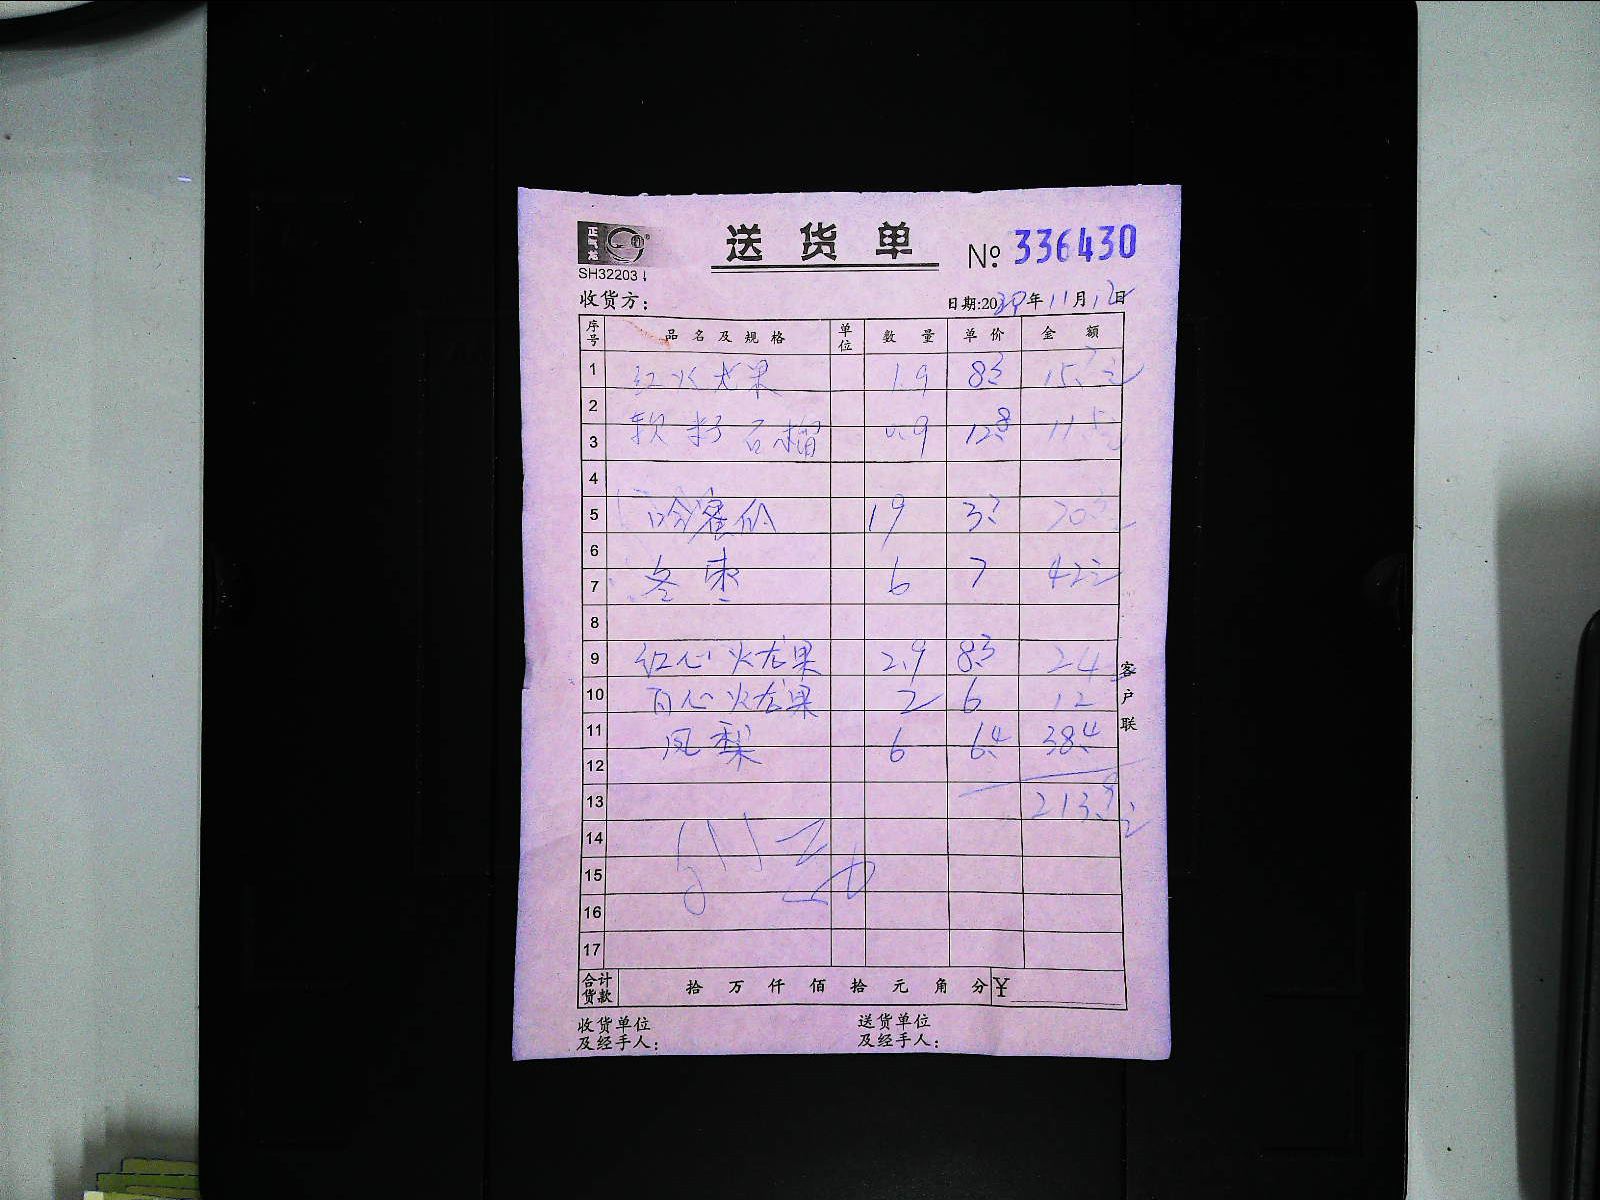 正气龙
送货单
№ 336430
SH32203↓
收货方：
日期:20 年11月12日
序号 品名及规格 单位 数量 单价 金额
1 红火龙果 1.9 8.3 15.7元
2
3 软籽石榴 0.9 12.8 11.5元
4
5 哈密瓜 19 3.7 70.3元
6
7 冬枣 6 7 42元
8
9 红心火龙果 2.9 8.3 24
10 白心火龙果 2 6 12
11 凤梨 6 6.4 38.4
12
13 213.9元
14
15
16
17
合计货款 拾 万 仟 佰 拾 元 角 分 ¥
收货单位及经手人：
送货单位及经手人：
客户联